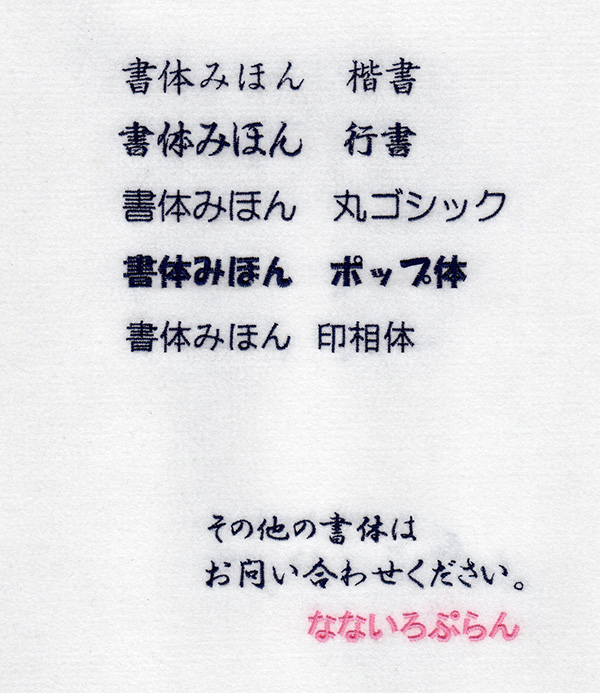 書体みほん　楷書
書体みほん　行書
書体みほん　丸ゴシック
書体みほん　ポップ体
書体みほん　印相体
その他の書体は
お問い合わせください。
なないろぷらん